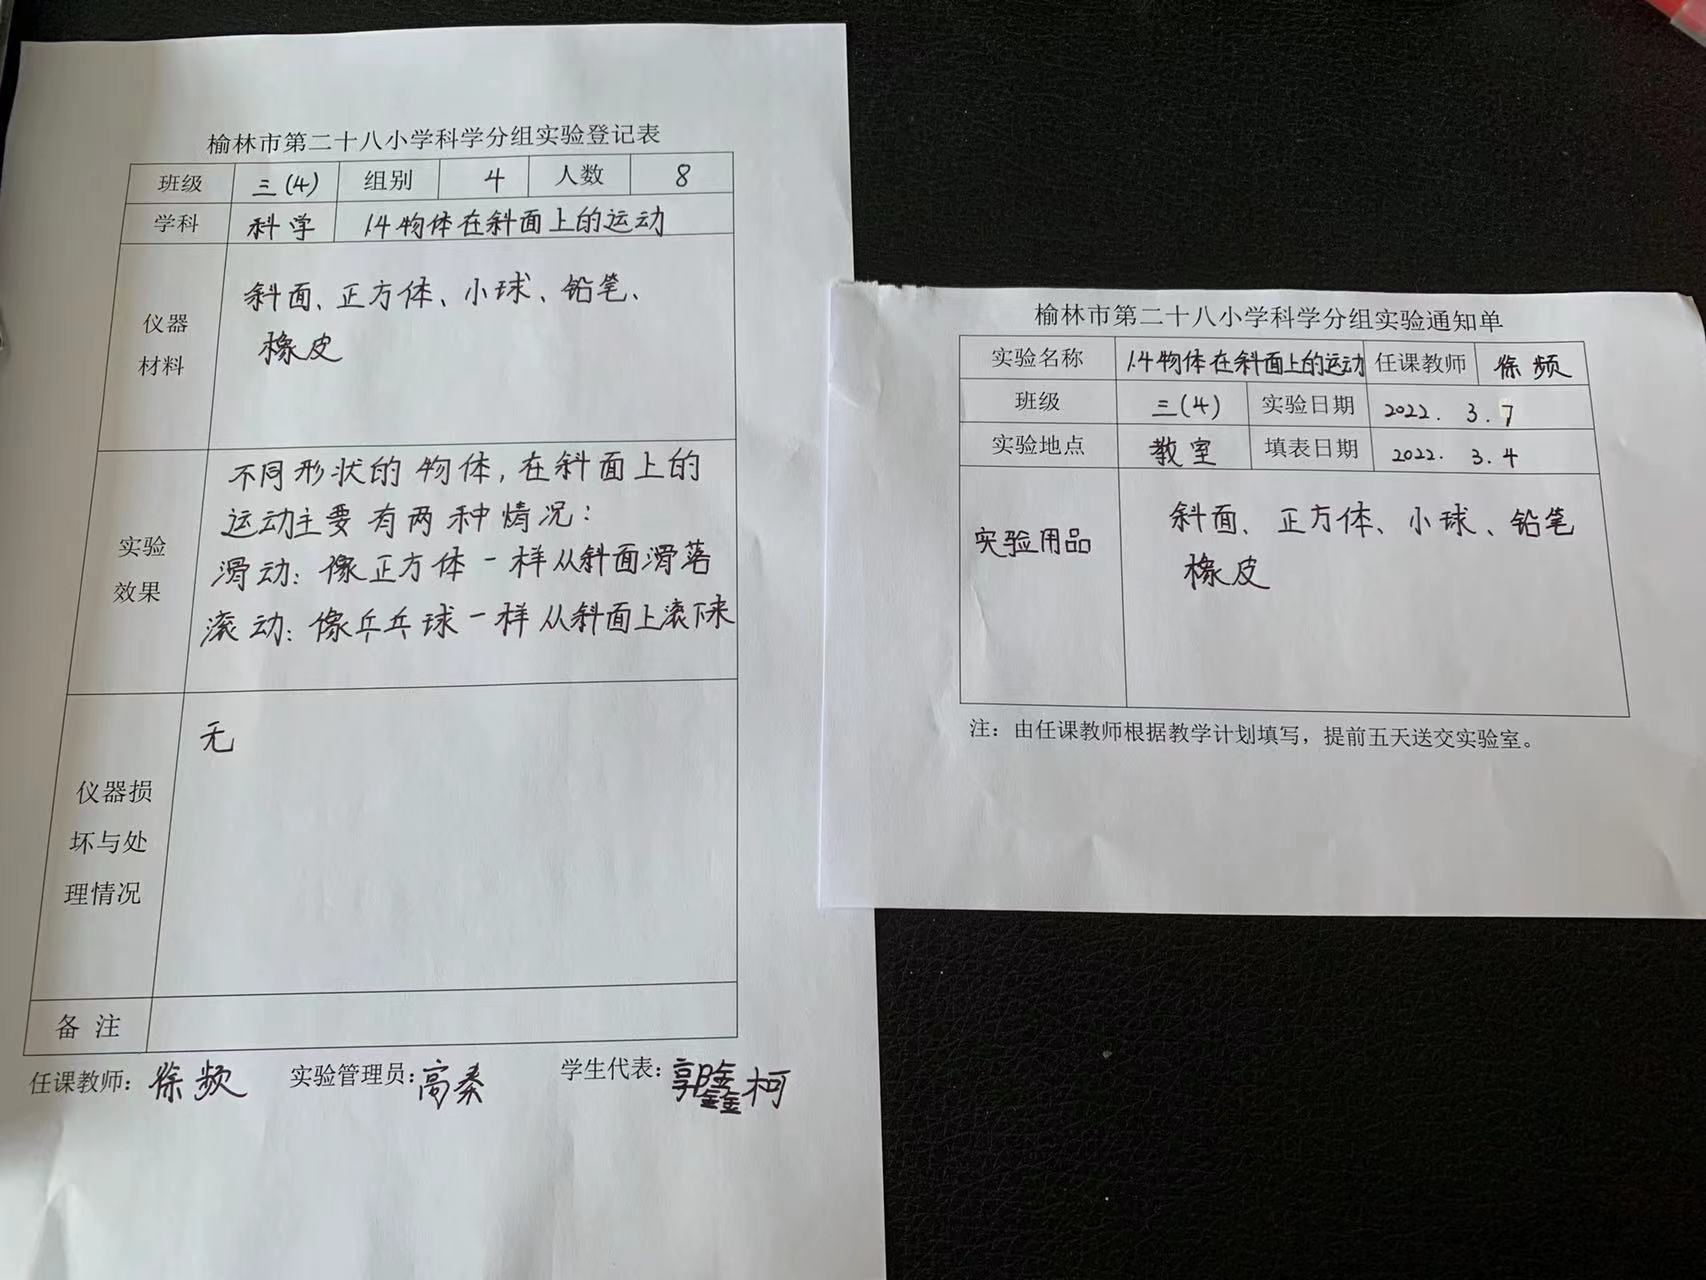 榆林市第二十八小学科学分组实验登记表
班级 三(4) 组别 4 人数 8
学科 科学 1.4物体在斜面上的运动
仪器材料
斜面、正方体、小球、铅笔、
橡皮
实验效果
不同形状的物体,在斜面上的
运动主要有两种情况:
滑动:像正方体一样从斜面滑落
滚动:像乒乓球一样从斜面上滚下来
仪器损坏与处理情况
无
备注
任课教师:徐频 实验管理员:高秦 学生代表:郭鑫柯
榆林市第二十八小学科学分组实验通知单
实验名称 1.4物体在斜面上的运动 任课教师 徐频
班级 三(4) 实验日期 2022.3.7
实验地点 教室 填表日期 2022.3.4
实验用品
斜面、正方体、小球、铅笔
橡皮
注:由任课教师根据教学计划填写,提前五天送交实验室。